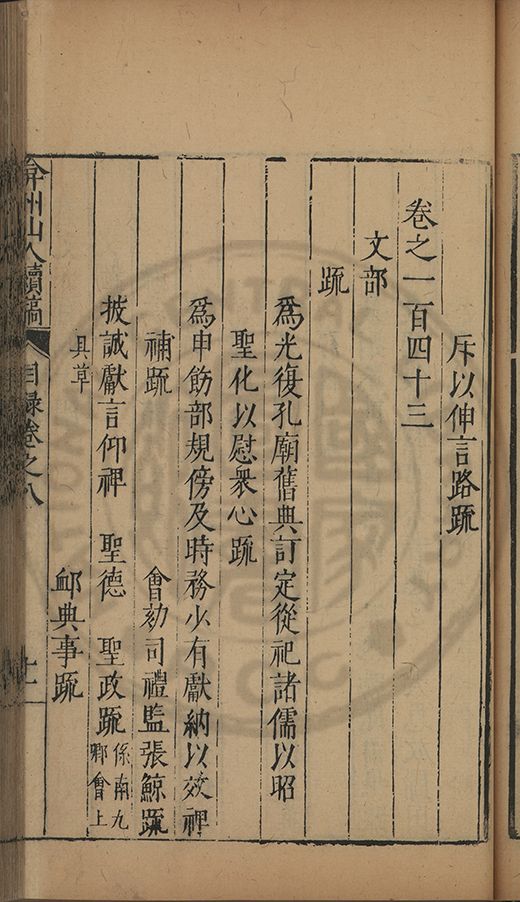 斥以伸言路疏
卷之一百四十三
文部
疏
為光復孔廟舊典訂定從祀諸儒以昭
聖化以慰衆心疏
為申飭部規傍及時務少有獻納以效裨
補疏　會劾司禮監張鯨疏
披誠獻言仰裨　聖德　聖政疏係南九卿會上
具草　卹典事疏
弇州山人續稿　目録卷之八